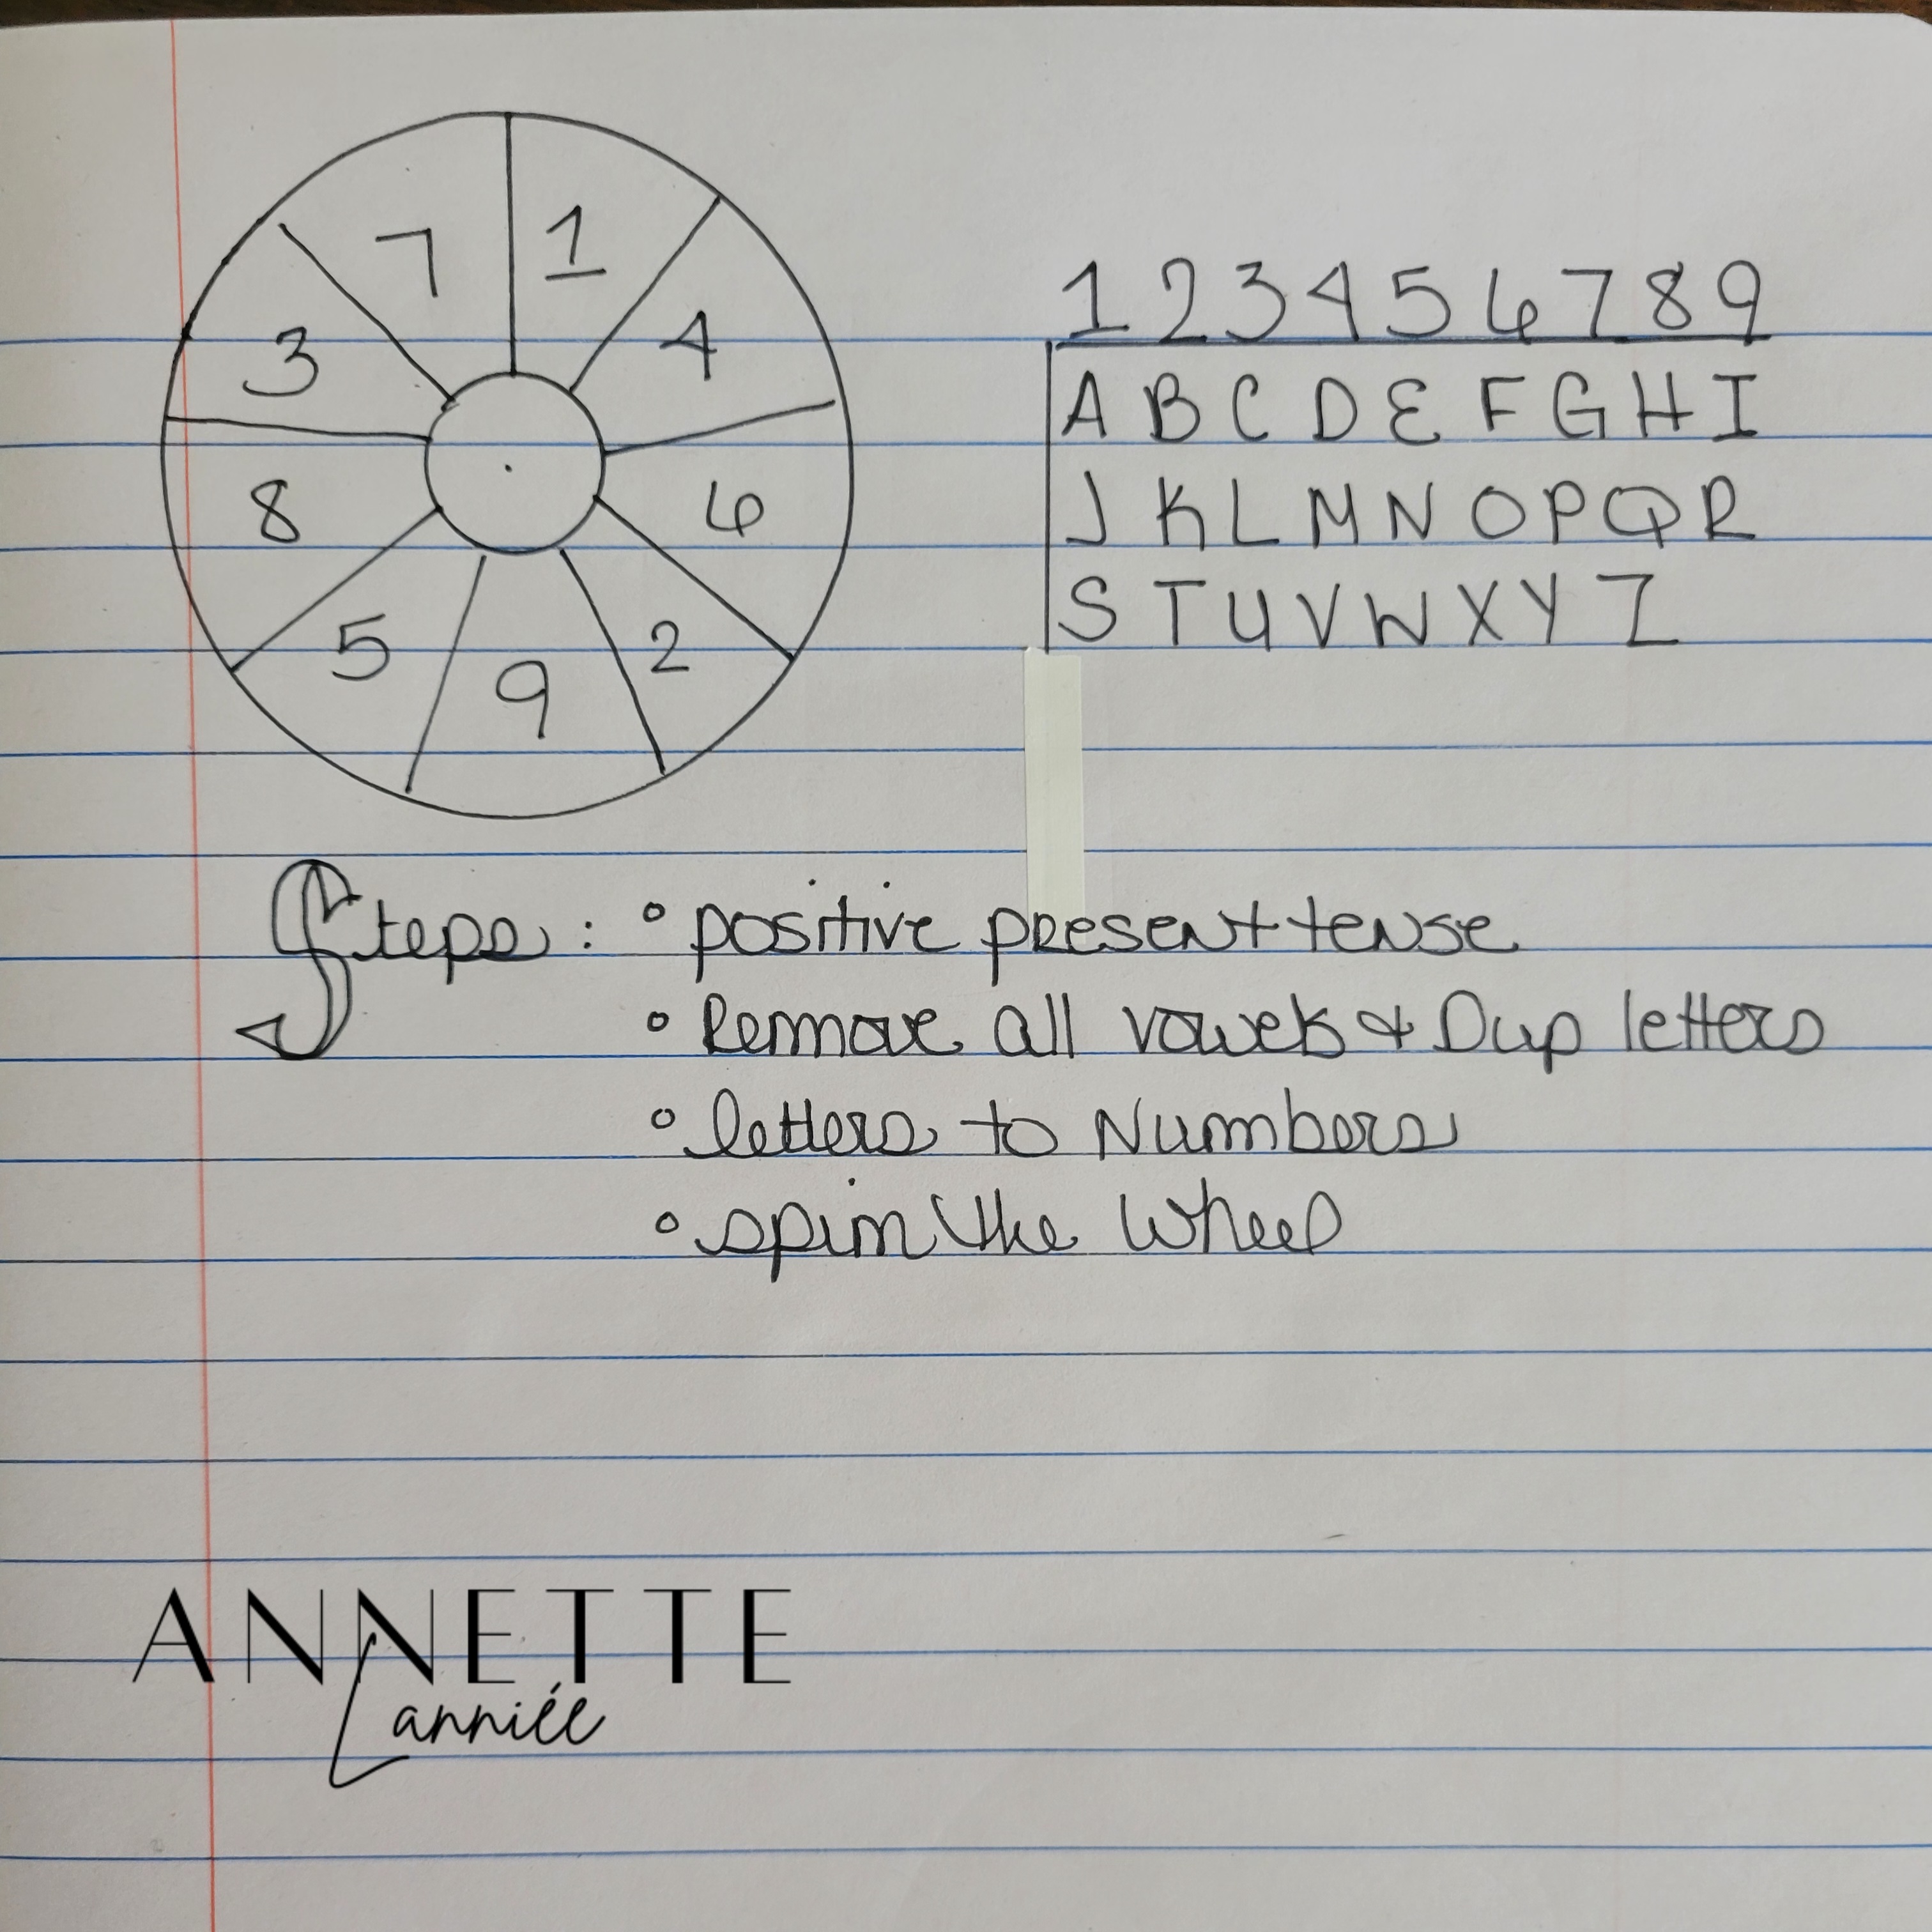 7 1
3 4
8 6
5 9 2
1 2 3 4 5 6 7 8 9
A B C D E F G H I
J K L M N O P Q R
S T U V W X Y Z
Steps: • positive present tense
• Remove all vowels & Dup letters
• letters to Numbers
• spin the wheel
ANNETTE
Lanniée